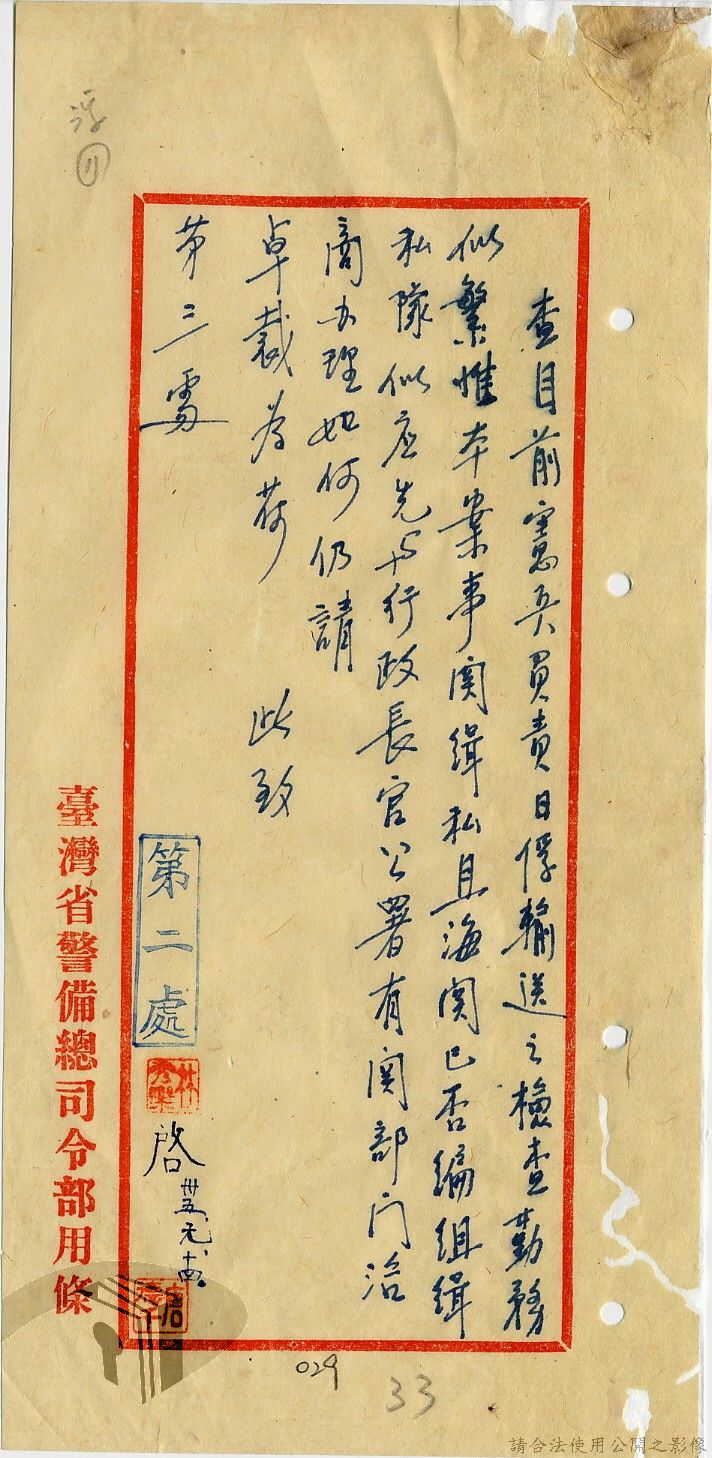 查目前憲兵負責日俘輸送之檢查勤務
似繁惟本案事関缉私且海関已否編組缉
私隊似应先与行政長官公署有関部门洽
商办理如何仍請
卓裁为荷　此致
第三處
第二處
林秀欒
啓
卅五、元、十四。
臺灣省警備總司令部用條
浮
11
029
33
請合法使用公開之影像